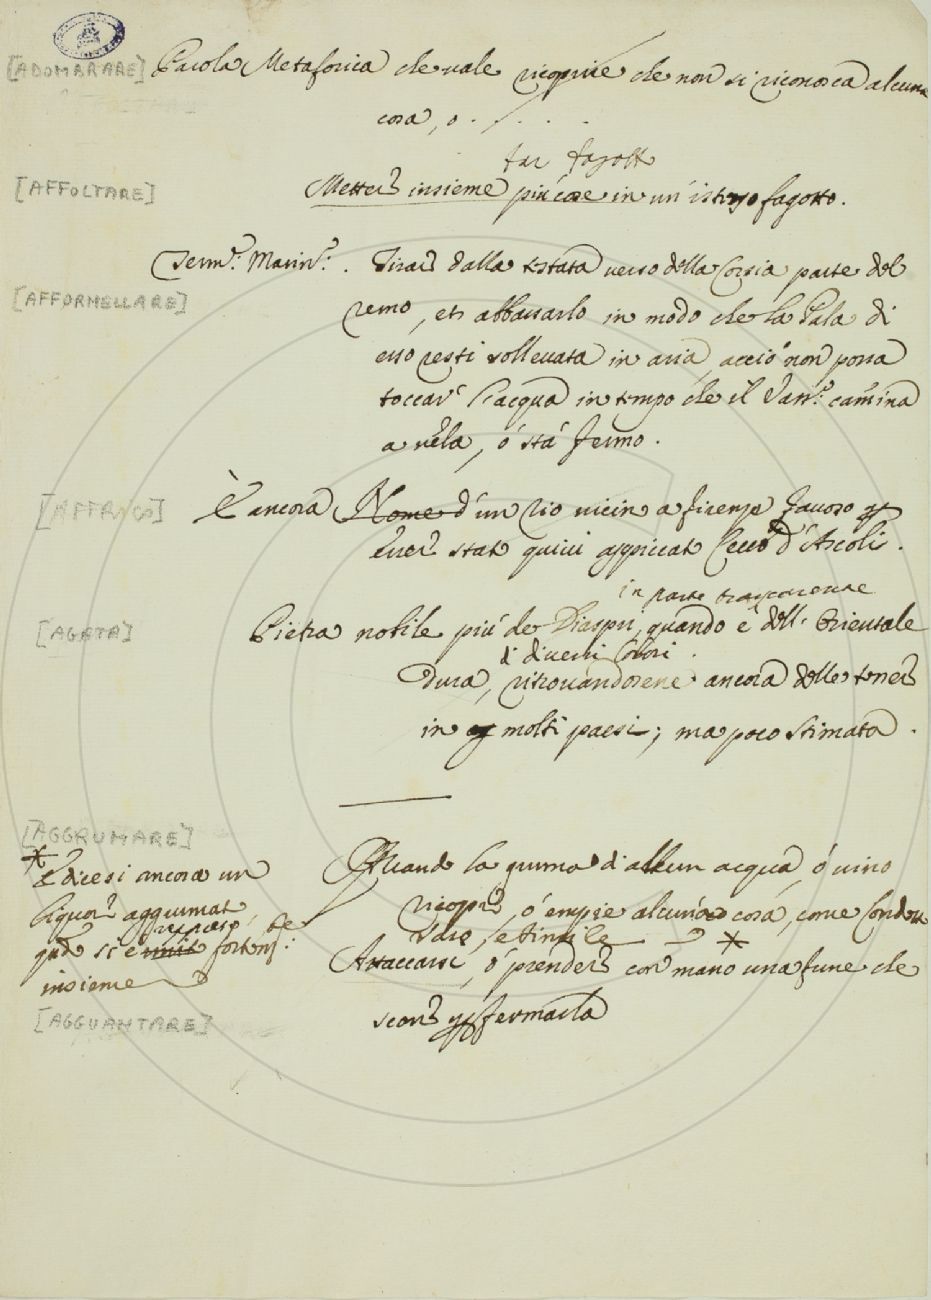 [ADOMBRARE] Parola Metaforica che vale ricoprire che non si riconosca alcuna
cosa, o . / . . .
far fagotto
[AFFOLTARE] Metter insieme più cose in un' istesso fagotto.
Term: Marin: . Tirar dalla testata verso della Corsia parte del
[AFFORNELLARE]
remo, et abbassarlo in modo che la Pala di
esso resti sollevata in aria, acciò non possa
toccar l'acqua in tempo che il Vass: camina
a vela, ò stà fermo.
[AFFRICO] È ancora Nome d'un rio vicin a firenze famoso p
esser stato quivi appiccato Cecco d'Ascoli.
in parte trasparente
[AGATA] Pietra nobile più de Diaspri, quando è dell' Orientale
di diversi Colori.
Dura, ritrovandosene ancora delle tenere
in molti paesi; ma poco stimata.
[AGGRUMARE]
Quando la gruma di alcun acqua, ò vino
ricopre, ò empie alcuna cosa, come Condotti
Vaso, e simile *
* E dicesi ancora un
liquor aggrumato
rapreso, e
qdo si è unito fortem:
insieme
Attaccarsi, ò prender con mano una fune che
[AGGUANTARE]
scorre p fermarla